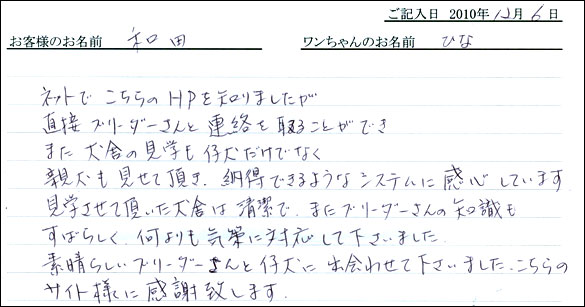 ご記入日 2010年12月6日
お客様のお名前 和田 ワンちゃんのお名前 ひな
ネットでこちらのHPを知りましたが
直接ブリーダーさんと連絡を取ることができ
また犬舎の見学も仔犬だけでなく
親犬も見せて頂き、納得できるようなシステムに感心しています
見学させて頂いた犬舎は清潔で、またブリーダーさんの知識も
すばらしく、何よりも気楽に対応して下さいました
素晴らしいブリーダーさんと仔犬に出会わせて下さいました、こちらの
サイト様に感謝致します。